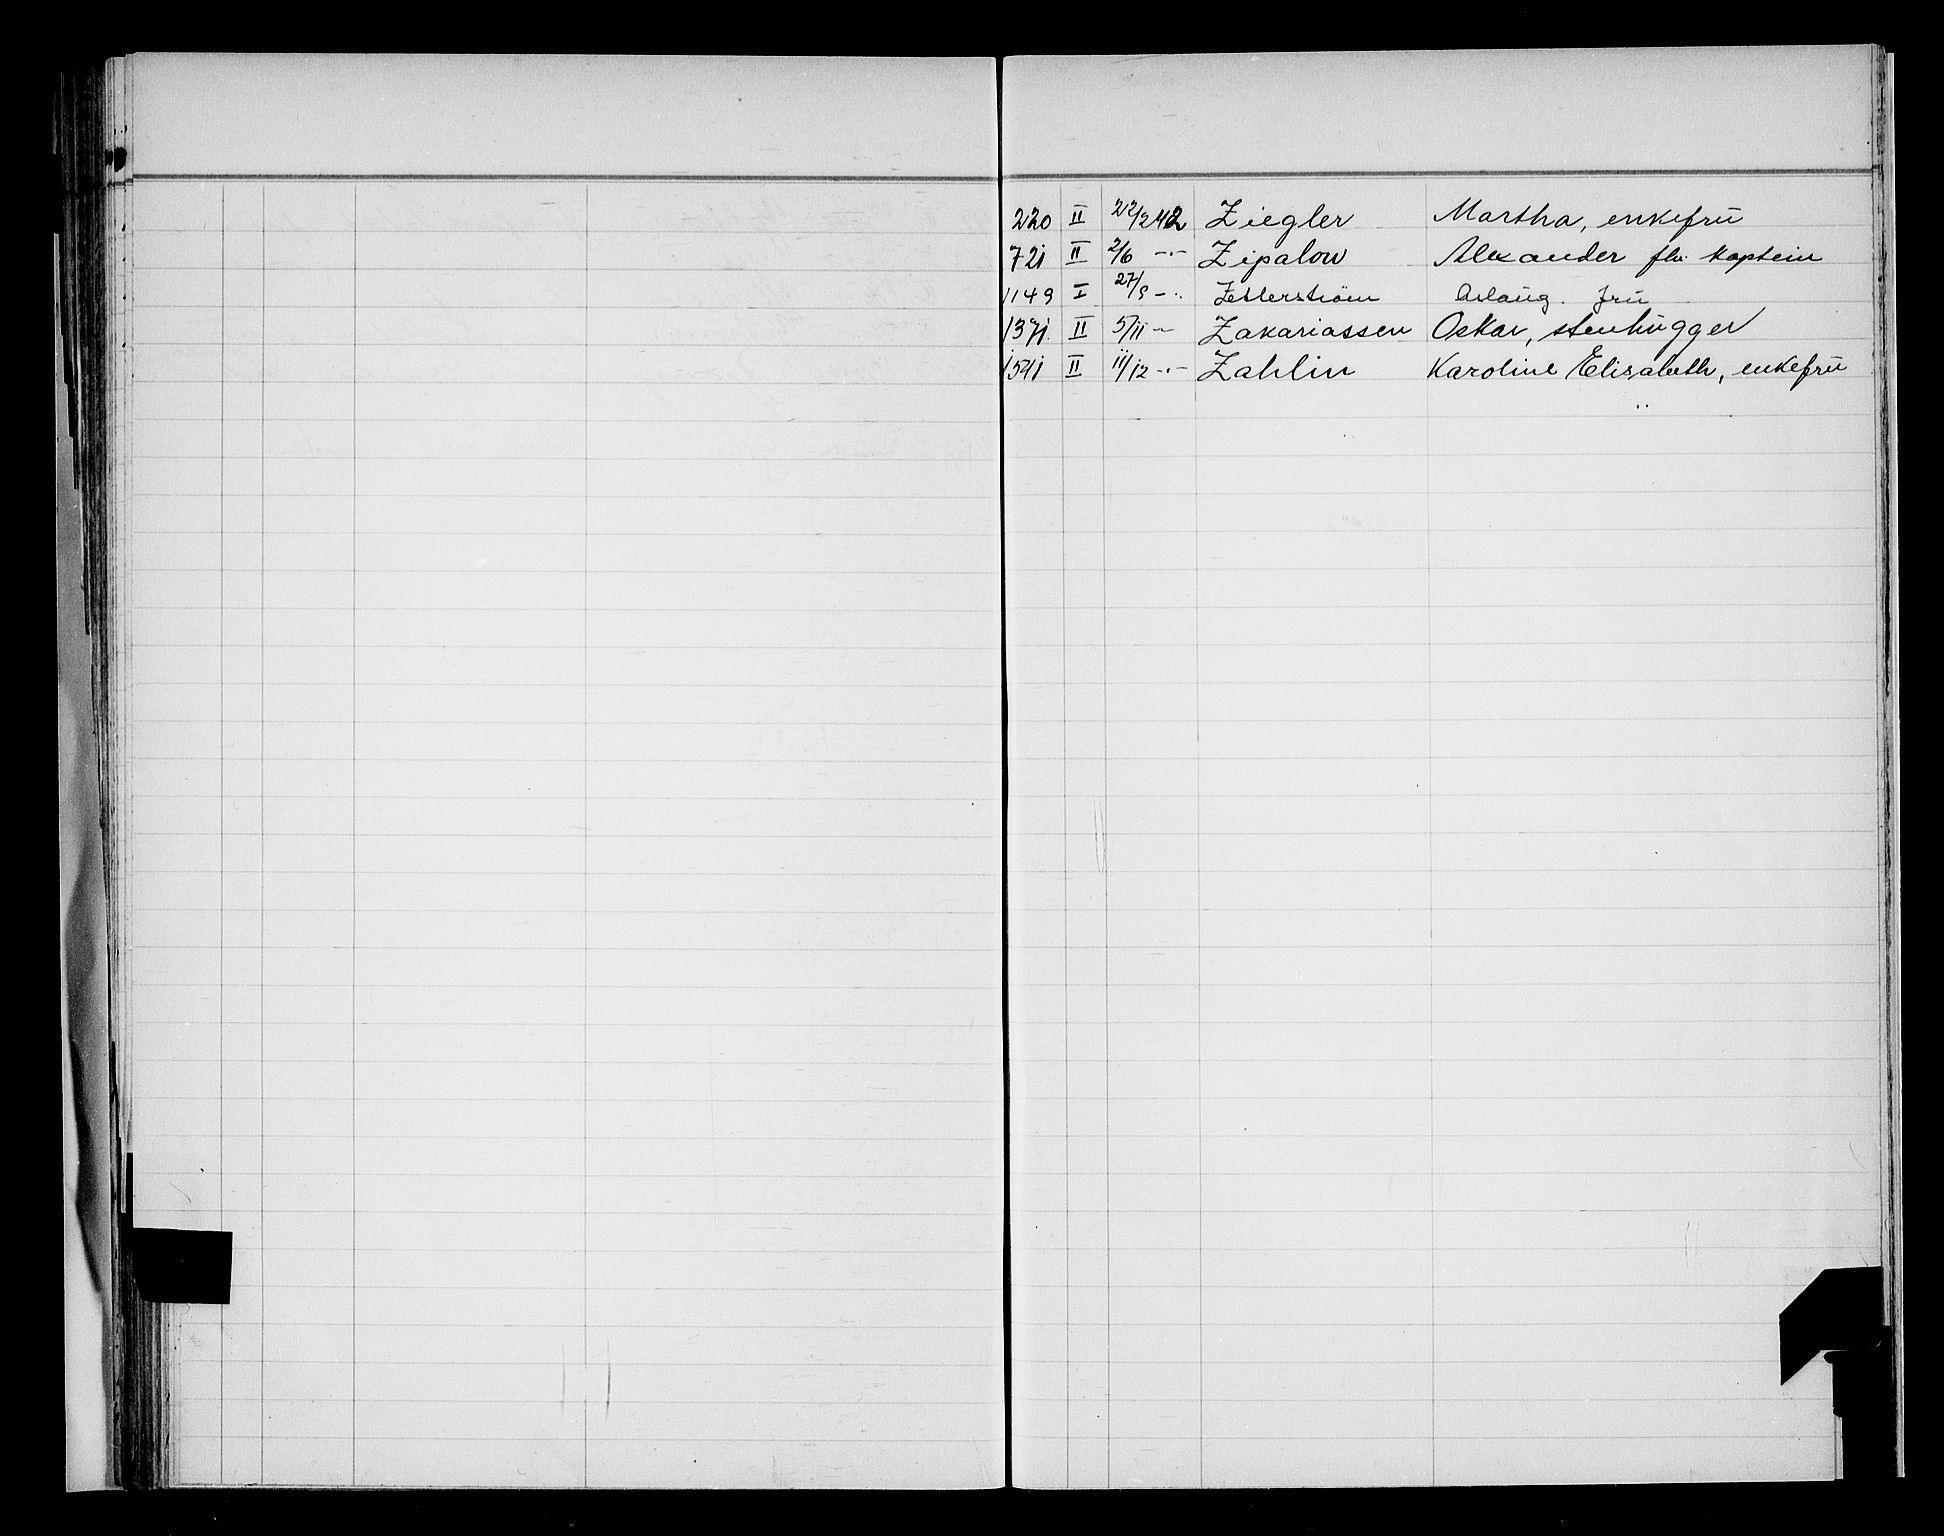 220 II 22/2 42 Ziegler Martha, enkefru
721 II 2/6 -"- Zipalow Alexander fhv. kaptein
1149 I 27/9 -"- Zetterström Aslaug. fru
1371 II 5/11 - Zakariassen Oskar, stenhugger
1541 II 11/12 -"- Zahlin Karoline Elisabeth, enkefru